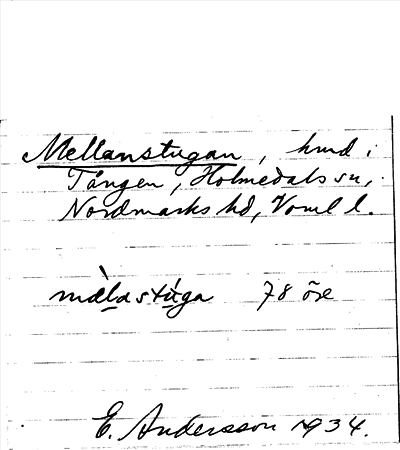 Mellanstugan, hmd i
Tången, Holmedals sn,
Nordmarks hd, Vrml l.
mælastuga 78 öre
E. Andersson 1934.